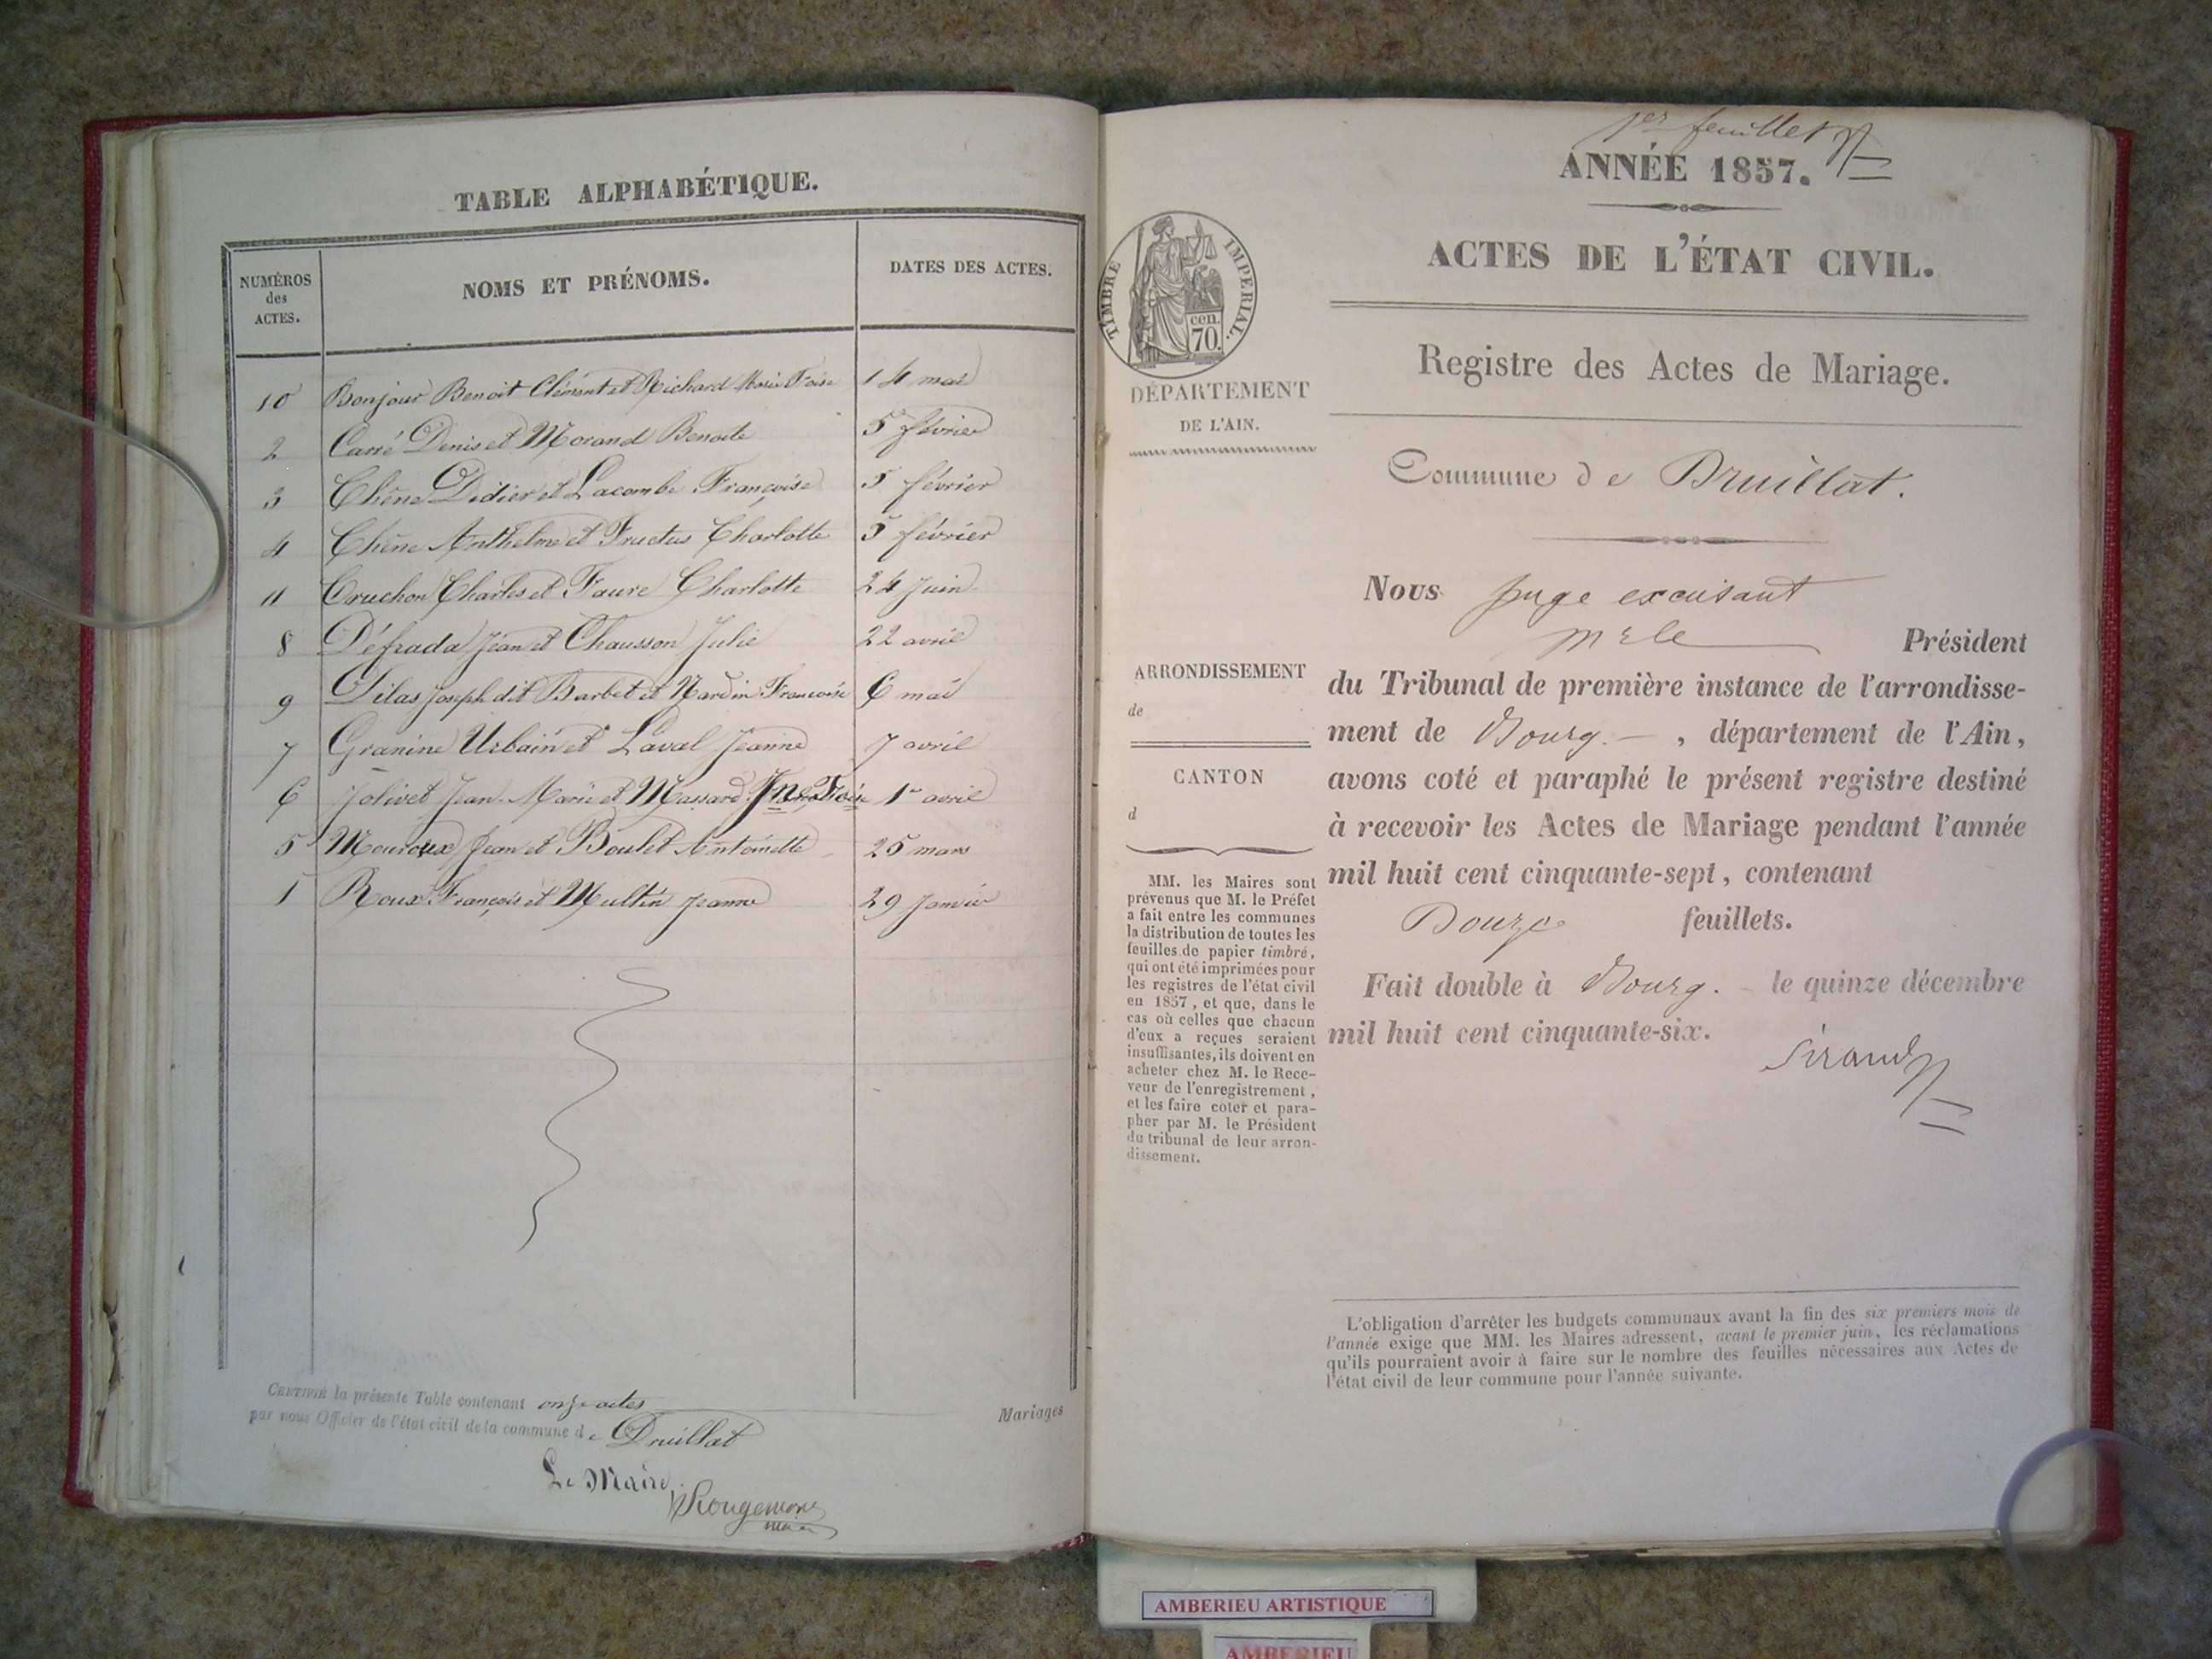 TABLE ALPHABÉTIQUE.
NUMÉROS des ACTES. NOMS ET PRÉNOMS. DATES DES ACTES.
10 Bonjour Benoit Clément et Richard Marie Foise 14 mai
2 Carré Denis et Morand Benoite 5 février
3 Chêne Didier et Lacombe Françoise 5 février
4 Chêne Anthelme et Fructus Charlotte 5 février
11 Cruchon Charles et Faure Charlotte 24 Juin
8 Défrada Jean et Chausson Julie 22 avril
9 Dilas Joseph dit Barbet et Nardin Francoise 6 mai
7 Granine Urbain et Laval Jeanne 7 avril
6 Jolivet Jean-Marie et Massard 1er avril
5 Mouroux Jean et Boulet Antoinette 25 mars
1 Roux François et Multin Jeanne 29 Janvier
CERTIFIÉ la présente Table contenant onze actes Mariages
par nous Officier de l'état civil de la commune de Druillat
Le Maire
Rougemont
maire
1er feuillet
ANNÉE 1857.
ACTES DE L'ÉTAT CIVIL.
TIMBRE IMPERIAL.
cen.
70.
Registre des Actes de Mariage.
DÉPARTEMENT
DE L'AIN.
Commune de Druillat.
Nous Juge
Président
ARRONDISSEMENT
de
du Tribunal de première instance de l'arrondisse-
ment de Bourg. , département de l'Ain,
CANTON
d
avons coté et paraphé le présent registre destiné
à recevoir les Actes de Mariage pendant l'année
mil huit cent cinquante-sept, contenant
Douze feuillets.
Fait double à Bourg. le quinze décembre
mil huit cent cinquante-six.
Sirand
MM. les Maires sont
prévenus que M. le Préfet
a fait entre les communes
la distribution de toutes les
feuilles de papier timbré,
qui ont été imprimées pour
les registres de l'état civil
en 1857, et que, dans le
cas où celles que chacun
d'eux a reçues seraient
insuffisantes, ils doivent en
acheter chez M. le Rece-
veur de l'enregistrement,
et les faire coter et para-
pher par M. le Président
du tribunal de leur arron-
dissement.
L'obligation d'arrêter les budgets communaux avant la fin des six premiers mois de
l'année exige que MM. les Maires adressent, avant le premier juin, les réclamations
qu'ils pourraient avoir à faire sur le nombre des feuilles nécessaires aux Actes de
l'état civil de leur commune pour l'année suivante.
AMBERIEU ARTISTIQUE
AMBERIEU